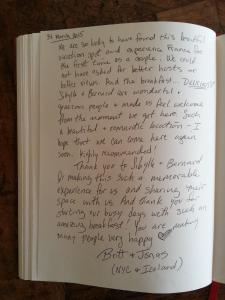 31 March 2015
We are so lucky to have found this beautiful
vacation spot and experience France for
the first time as a couple. We could
not have asked for better hosts or
better views. And the breakfast... DELICIOUS!
Sibylle + Bernard are wonderful +
gracious people + made us feel welcome
from the moment we got here. Such
a beautiful + romantic location - I
hope that we can come here again
soon. Highly recommended!
Thank you to Sibylle + Bernard
for making this such a memorable
experience for us and sharing your
space with us. And thank you for
starting our busy days with such an
amazing breakfast! You are making
many people very happy ♡
Britt + Jonas
(NYC & Iceland)